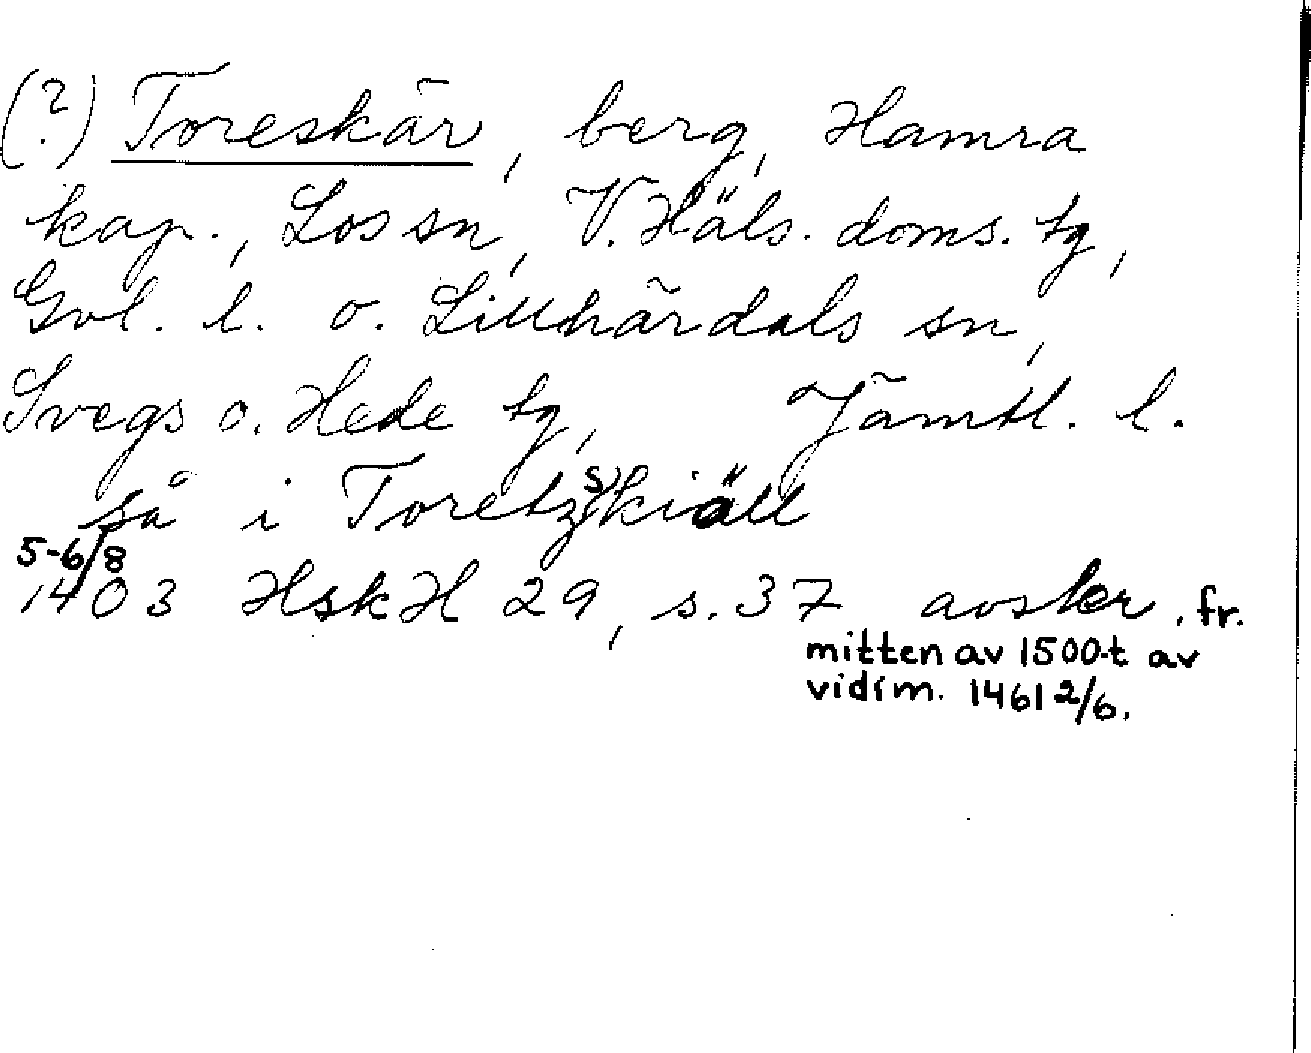 (?) Toreskär, berg, Hamra
kap., Los sn, V. Häls. doms. tg,
Gvl. l. o. Lillhärdals sn,
Svegs o. Hede tg, Jämtl. l.
så i Toretz(s)kiäll
5-6/8
1403 HskH 29, s. 37 avskr. fr.
mitten av 1500-t av
vidim. 1461 2/6.